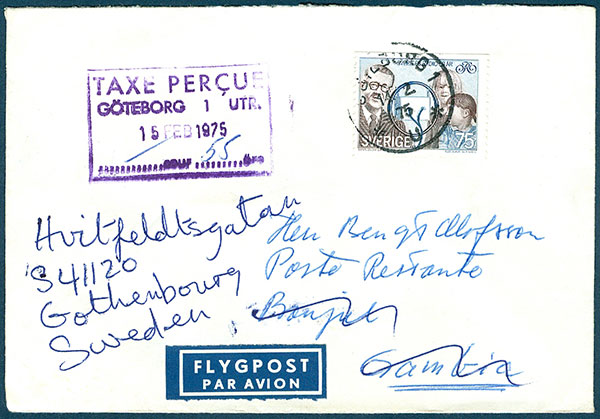 TAXE PERÇUE
GÖTEBORG 1 UTR.
15 FEB 1975
55 öre
SVERIGE 75
Hvitfeldtsgatan
S41120
Gothenbourg
Sweden
Herr Bengt Olofsson
Poste Restante
Banjul
Gambia
FLYGPOST
PAR AVION